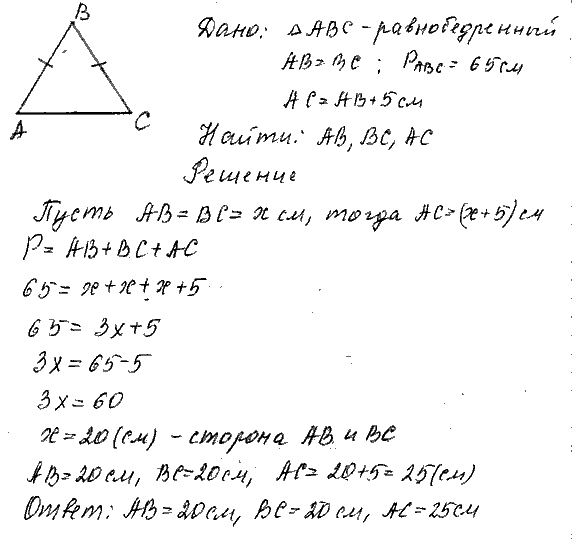 B
A
C
Дано: △ABC - равнобедренный
AB=BC; P_ABC = 65см
AC=AB+5см
Найти: AB, BC, AC
Решение
Пусть AB=BC=x см, тогда AC=(x+5) см
P= AB+BC+AC
65= x+x+x+5
65= 3x+5
3x=65-5
3x=60
x=20(см) - сторона AB и BC
AB=20см, BC=20см, AC= 20+5=25(см)
Ответ: AB=20см, BC=20см, AC=25см